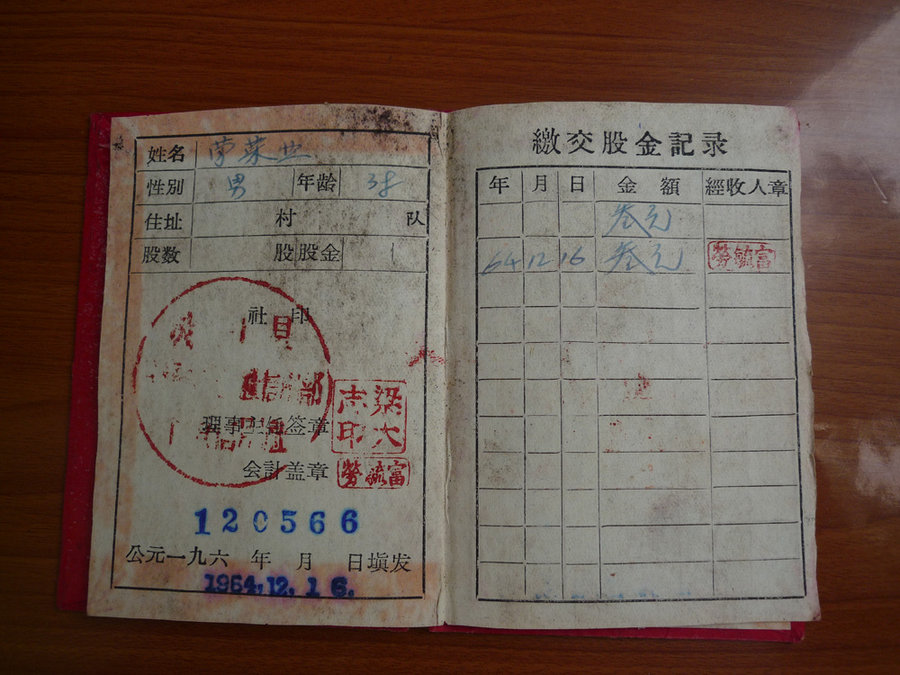 姓名
性別 男 年龄 38
住址 村 队
股数 股 股金
社印
理事主任签章
梁大志印
会計盖章 勞毓富
120566
公元一九六 年 月 日填发
1964.12.16.
繳交股金記录
年 月 日 金額 經收人章
叁元
64 12 16 叁元 勞毓富